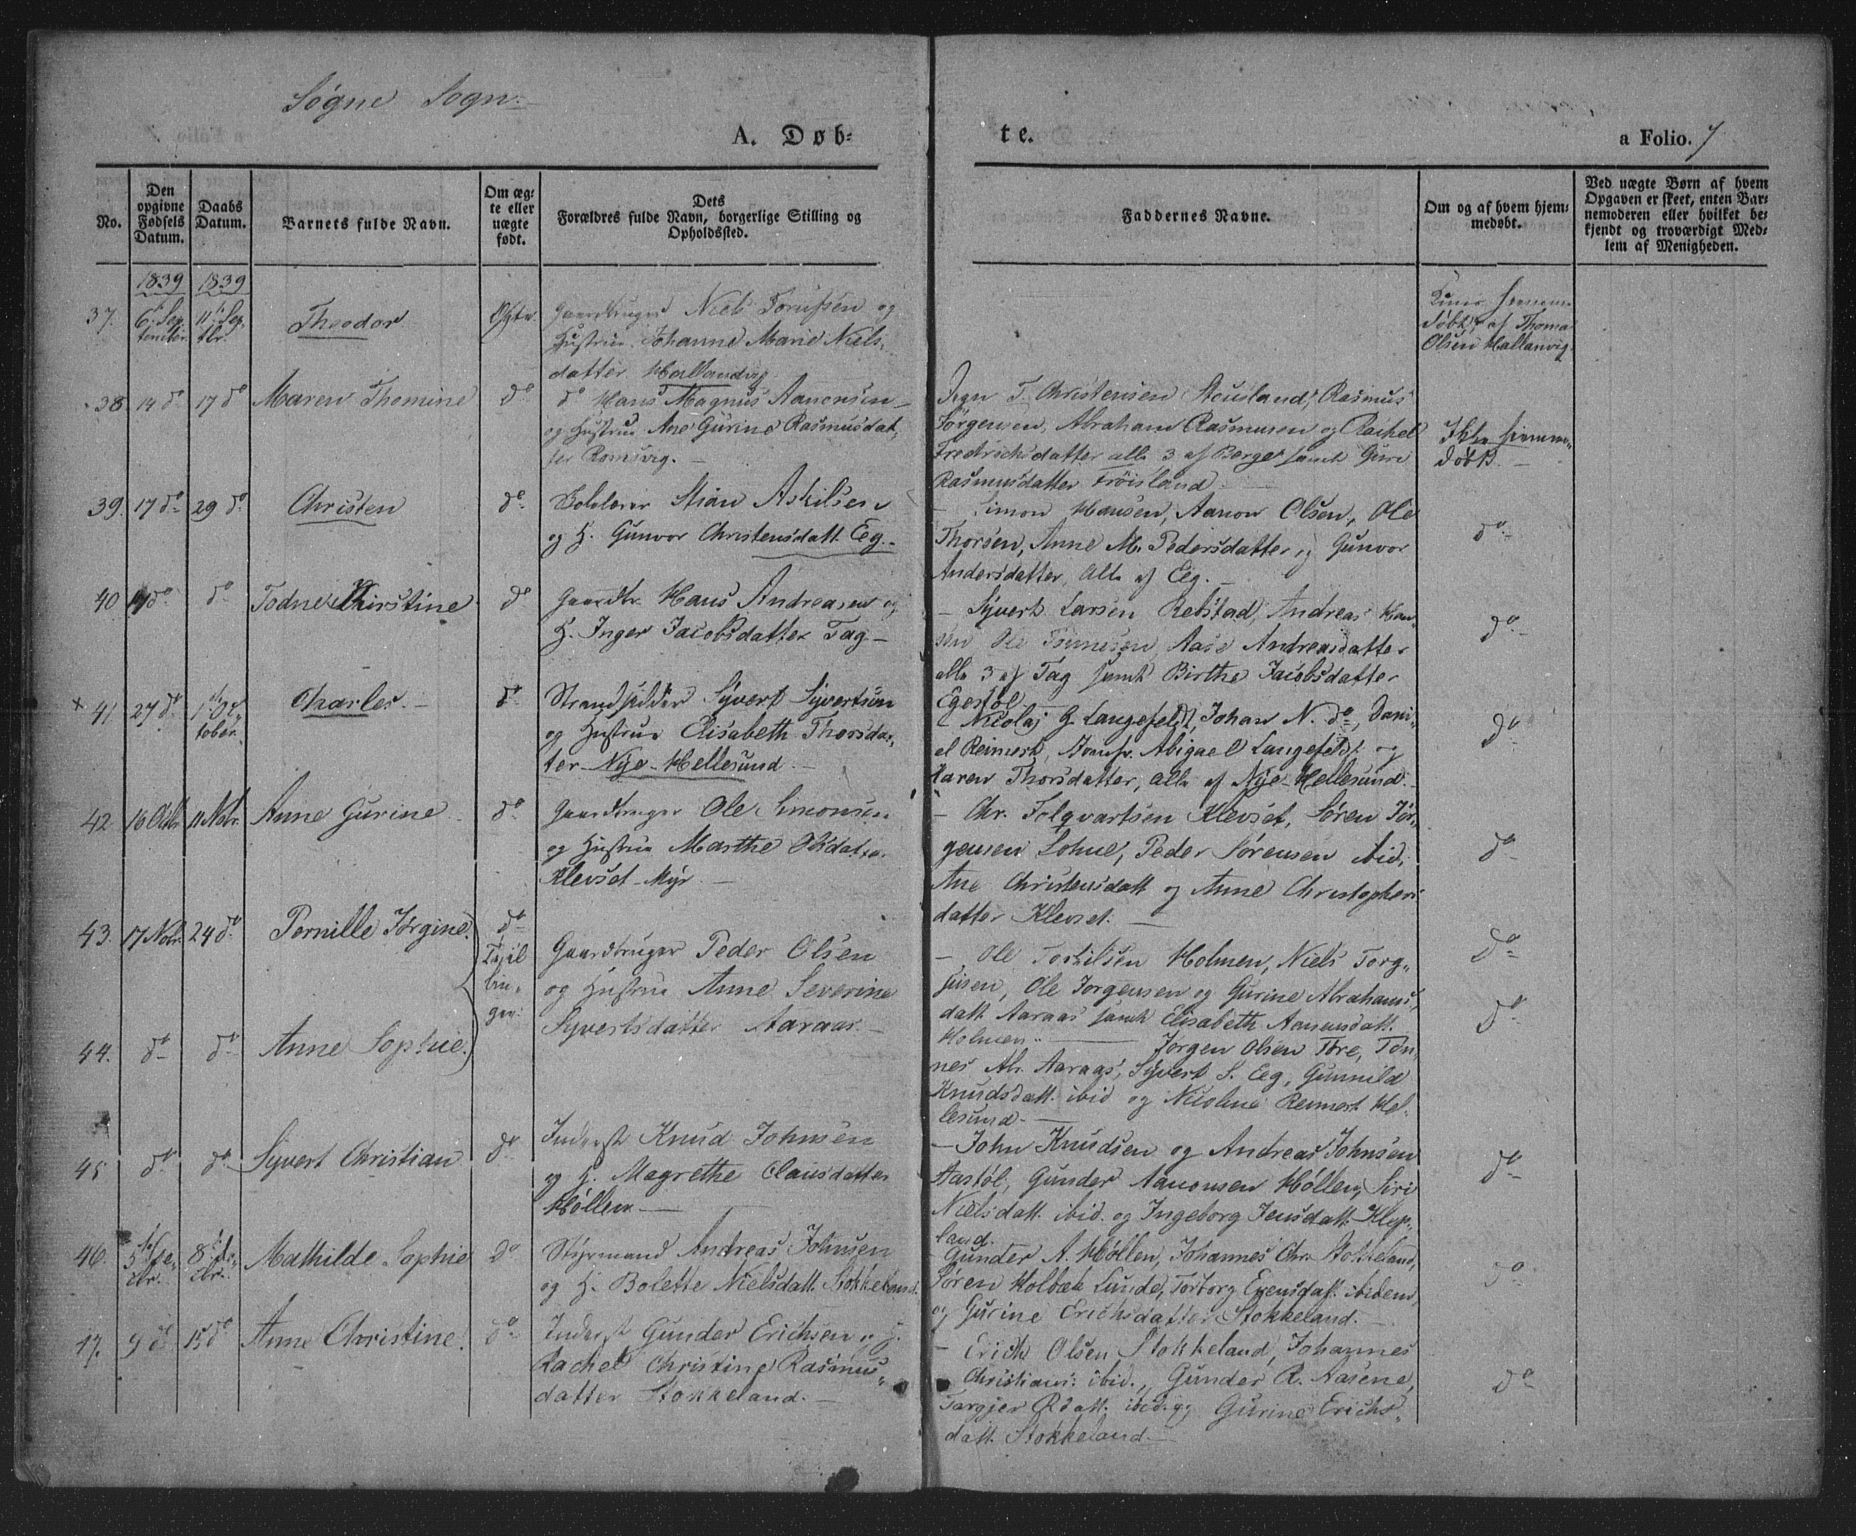 Søgne Sogn.
A. Døb-
te.
a Folio. 7
No.
Den opgivne Fødsels Datum.
Daabs Datum.
Barnets fulde Navn.
Om ægte eller uægte født.
Dets Forældres fulde Navn, borgerlige Stilling og Opholdssted.
Faddernes Navne.
Om og af hvem hjemmedøbt.
Ved uægte Børn af hvem Opgaven er skeet, enten Barnemoderen eller hvilket bekjendt og troværdigt Medlem af Menigheden.
1839 1839
37. 6te Septembr 11te Septbr. Theodor Ægte Gaardbruger Niels
Hustrue Johanne Marie Niels-
datter Hallandvig
hjemme-
døbt af Thomas
Olsen Hallanvig.
38 14 do 17 do Maren Thomine do do Hans Magnus Aanonsen
og Hustrue Ane Gurine Rasmusdat-
ter Romsvig.
T. Christensen Stousland, Rasmus
Jørgensen, Abraham Rasmusen og Rachel
Fredrichsdatter alle 3 af Berge samt Guri
Rasmusdatter Frøisland
Ikke hjemme-
døbt.
39. 17 do 29 do Christen do Stian Askilsen
og H. Gunvor Christensdatt. Eeg.
Simon Hansen, Aanon Olsen, Ole
Thorsen, Anne M. Pedersdatter og Gunvor
Andersdatter, alle af Eeg.
do
40 do do Todne Kirstine do Gaardbr. Hans Andreasen og
H. Inger Jacobsdatter Tag
Syvert Larsen Rebstad, Andreas Han-
sen Ole Aase Andreasdatter
alle 3 af Tag samt Birthe Jacobsdatter
Egestøl
do
41 27 do 1ste October. Charles do Strandsidder Syvert Syvertsen
og Hustrue Elisabeth Thorsdat-
ter Nye-Hellesund
Nicolaj G. Langefeldt, Johan N. do, Dani-
el Reimert, Jomfr. Abigael Langefeldt og
Karen Thorsdatter, alle af Nye-Hellesund.
do
42. 16 Octbr 11 Novbr. Anne Gurine do Gaardbruger Ole Simonsen
og Hustrue Marthe Olsdatter
Klevset-Myr
Chr. Folqvartsen Klevset, Søren Jør-
gensen Lohne, Peder Sørensen ibid,
Ane Christensdatt og Anne Christophers
datter Klevset.
do
43. 17 Novbr 24 do Pernille Jørgine do
Tvil-
lin-
ger
Gaardbruger Peder Olsen
og Hustrue Anne Severine
Syvertsdatter Aaraas.
Ole Torkilsen Holmen, Niels Torg-
jusen, Ole Jørgensen og Gurine Abrahams-
datt Aaraas samt Elisabeth Aanensdatt.
Holmen.
do
44. do do Anne Sophie.
Jørgen Olsen Tøre, Tøn-
nes Abr. Aaraas, Syvert S. Eeg, Gunnild
Knudsdatt. ibid og Nicoline Reimert Hel-
lesund.
do
45 do do Syvert Christian do Inderst Knud Johnsen
og H. Magrethe Clausdatter
Høllen
John Knudsen og Andreas Johnsen
Aastøl, Gunder Aanonsen Høllen, Siri
Nielsdatt. ibid. og Ingeborg Jensdatt. Klep-
land.
do
46. 5te Decbr. 8de Decbr. Mathilde Sophie do Styrmand Andreas Johnsen
og H. Bolette Nielsdatt. Stokkeland
Gunder A. Høllen, Johannes Chr. Stokkeland,
Søren Holbæk Lunde, Torborg Evensdatt. ibidem,
og Gurine Erichsdatter Stokkeland.
do
47. 9 do 15 do Anne Christine. do Inderst Gunder Erichsen og H.
Rachel Christine Rasmus-
datter Stokkeland.
Erich Olsen Stokkeland, Johannes
Christians: ibid., Gunder R. Aasene
Targjer datt. ibid. og Gurine Erichs-
datt. Stokkeland
do